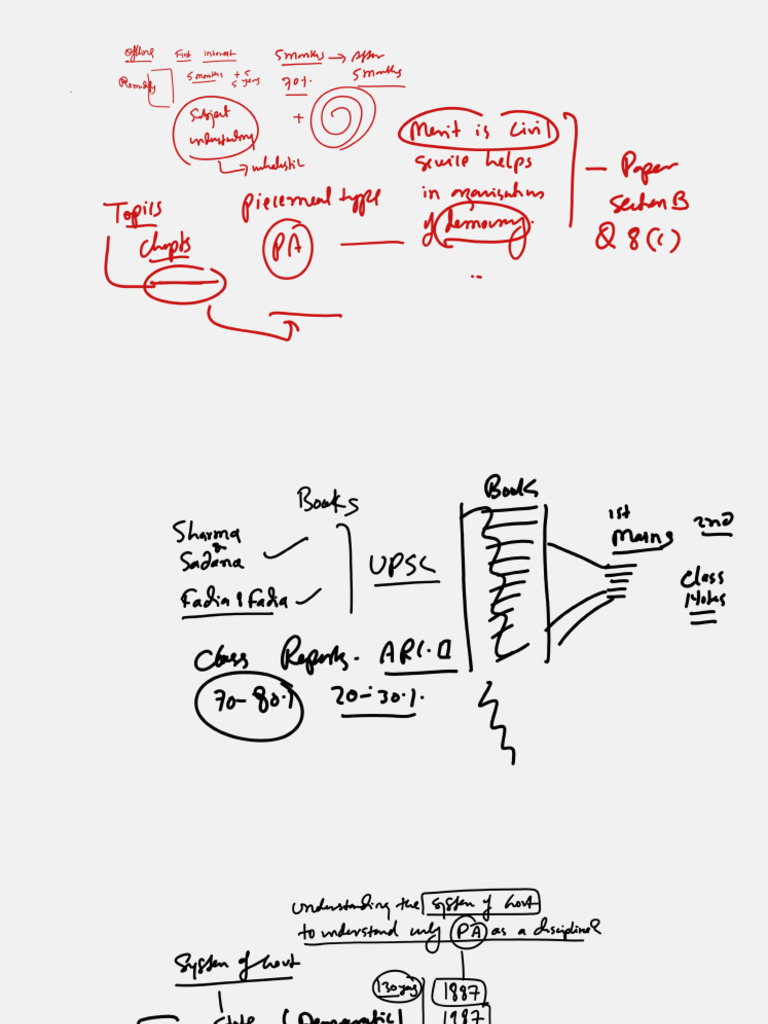 Offline First interest 5 months → After 5 months
Remedy 5 months + 5 5 years 70%
Subject understanding +
→ wholestic
Merit is Civil
service helps
in organisations
of democracy.
— Paper
Section B
Q 8 (c)
Topics
Chapts
Piecemeal type
PA
Books
Sharma
&
Sadana
Fadia & Fadia
UPSC
Class Reports. ARC. II
70-80% 20-30%.
Books
1st
Mains
2nd
Class
Notes
Understanding the System of Govt
to understand why PA as a discipline
System of Govt
130 yrs 1887
State (Democratic) 1987